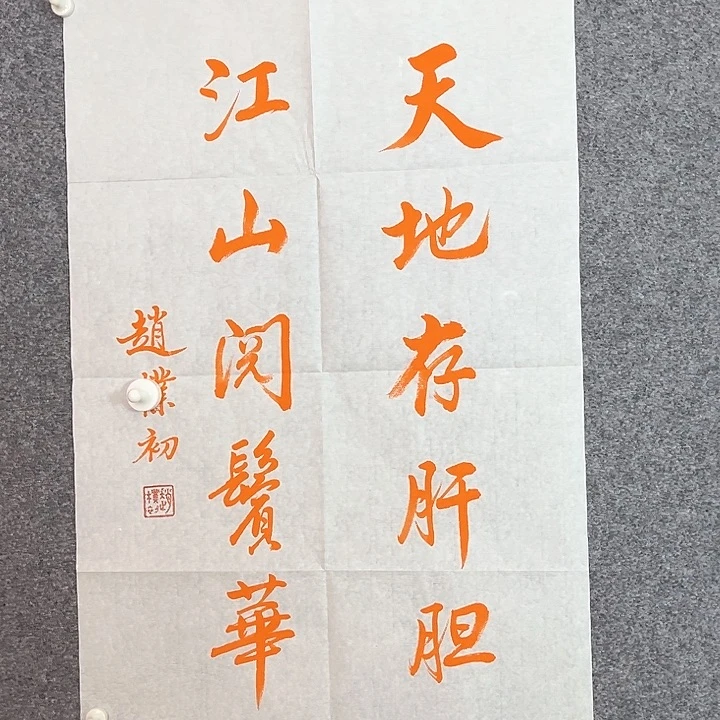 天地存肝胆
江山阅鬓華
趙樸初